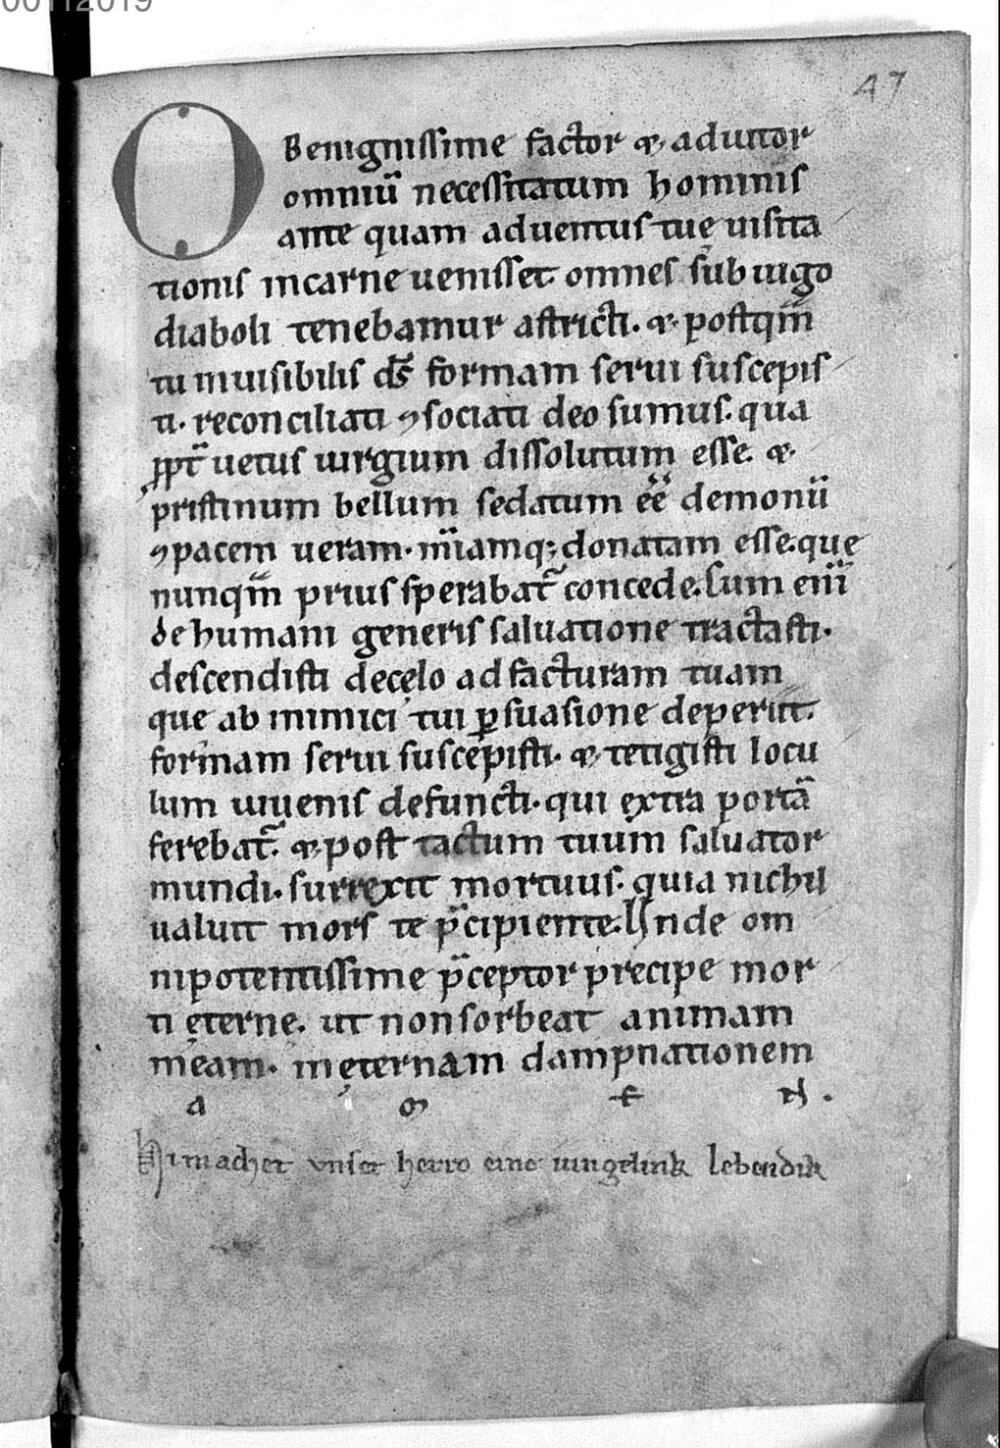 00112019
47
O Benignissime factor & adiutor
omniū necessitatum hominis
ante quam aduentus tuę uisita
tionis incarne uenisset omnes sub iugo
diaboli tenebamur astricti. & postqm̄
tu inuisibilis ds̄ formam serui suscepis
ti. reconciliati ꝯsociati deo sumus. qua
ꝓpt̄ uetus iurgium dissolutum esse. &
pristinum bellum sedatum eē demonū
ꝯpacem ueram. mīamq; donatam esse. que
nunqm̄ prius sperabat᷑ concede. Cum enī
de humani generis saluatione tractasti.
descendisti decelo ad facturam tuam
que ab inimici tui ꝑsuasione deperiit.
formam serui suscepisti. & tetigisti locu
lum iuuenis defuncti. qui extra portā
ferebat᷑. & post tactum tuum saluator
mundi. surrexit mortuus. quia nichil
ualuit mors te p̄cipiente. Unde om
nipotentissime p̄ceptor precipe mor
ti ęterne. ut non sorbeat animam
meam. in ęternam dampnationem
a m e N.
Hi machet vnser herro eine iungelink lebendik